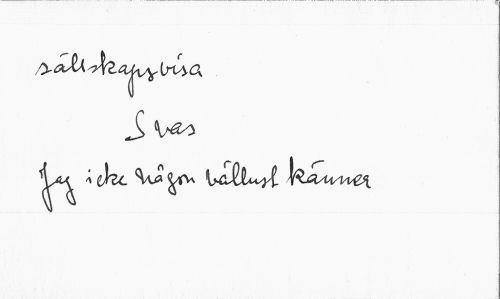 sällskapsvisa
Svas
Jag icke någon vällust känner